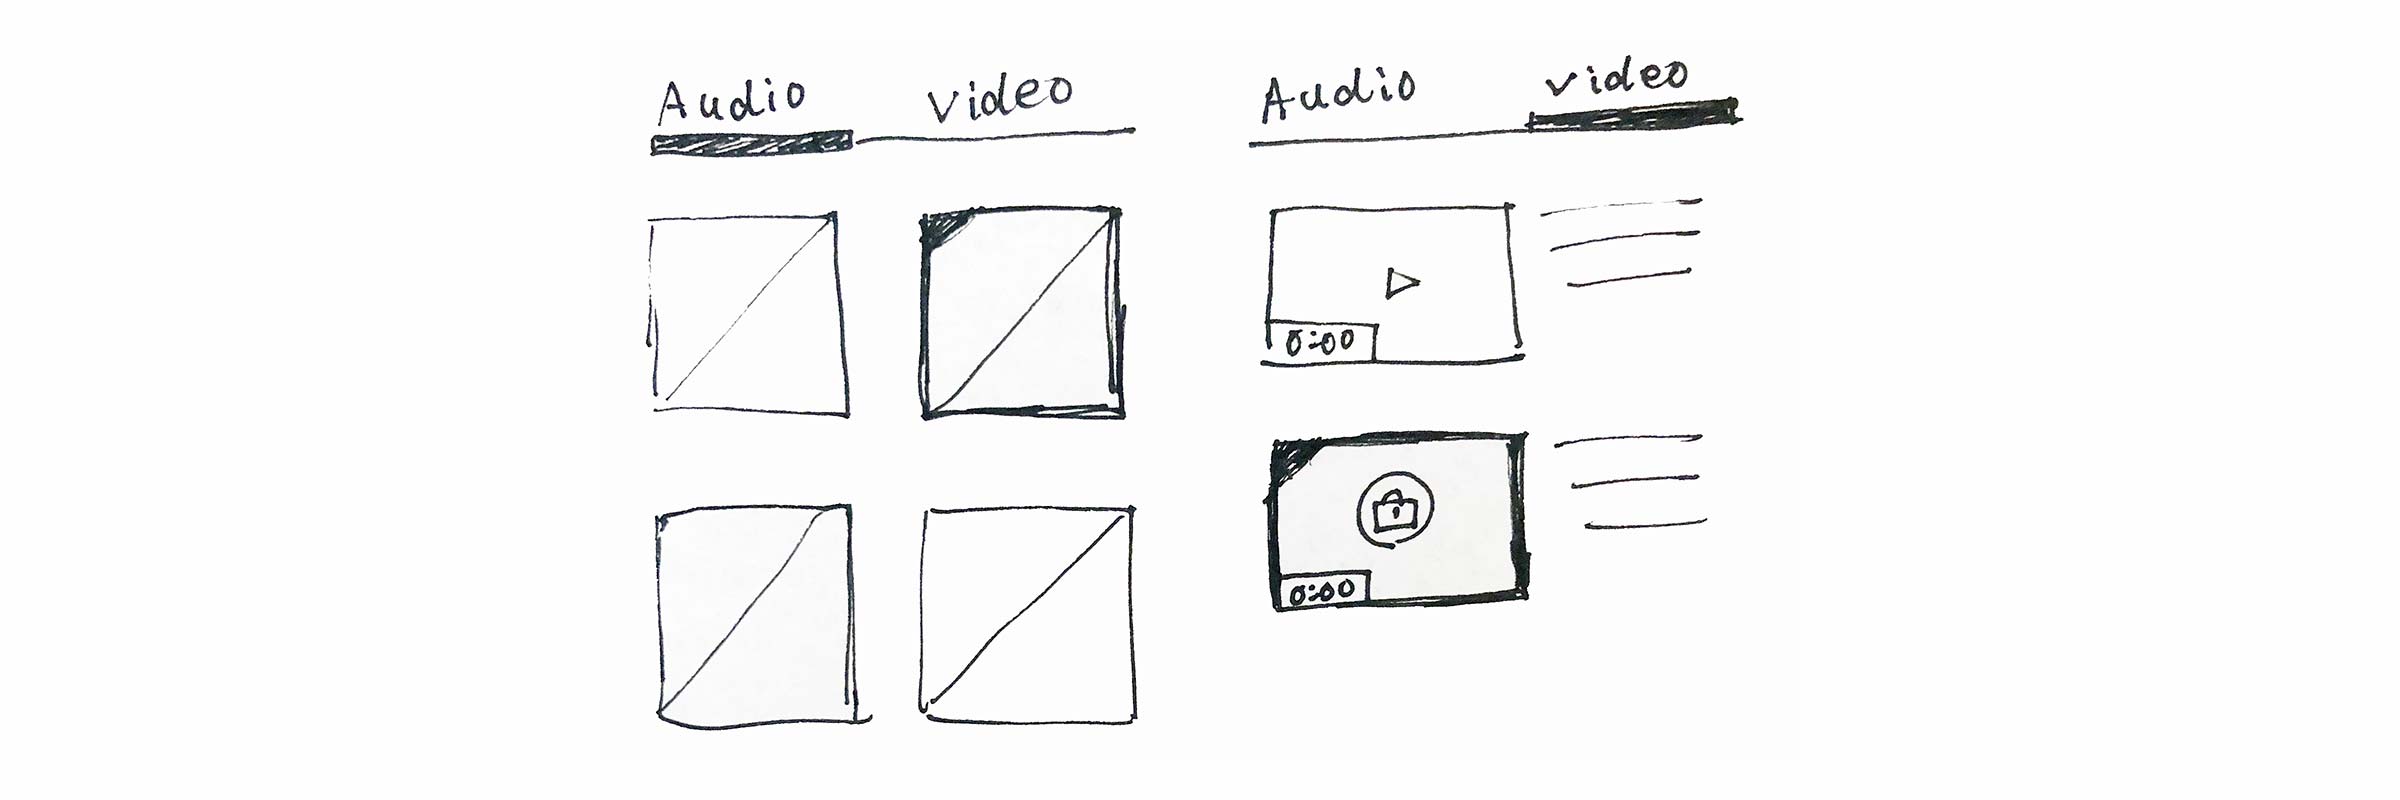 Audio video
Audio video
0:00
0:00